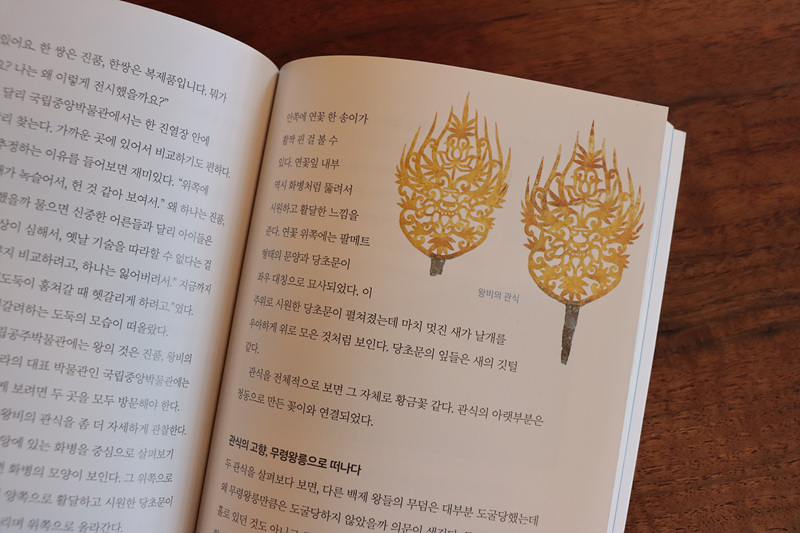 있어요. 한 쌍은 진품, 한쌍은 복제품입니다. 뭐가
요? 나는 왜 이렇게 전시했을까요?"
달리 국립중앙박물관에서는 한 진열장 안에
리 찾는다. 가까운 곳에 있어서 비교하기도 편하다.
추정하는 이유를 들어보면 재미있다. "위쪽에
가 녹슬어서, 헌 것 같아 보여서." 왜 하나는 진품,
했을까 물으면 신중한 어른들과 달리 아이들은
상이 심해서, 옛날 기술을 따라할 수 없다는 걸
지 비교하려고, 하나는 잃어버려서." 지금까지
도둑이 훔쳐갈 때 헷갈리게 하려고."였다.
갈려하는 도둑의 모습이 떠올랐다.
립공주박물관에는 왕의 것은 진품, 왕비의
라의 대표 박물관인 국립중앙박물관에는
께 보려면 두 곳을 모두 방문해야 한다.
왕비의 관식을 좀 더 자세하게 관찰한다.
앙에 있는 화병을 중심으로 살펴보기
면 화병의 모양이 보인다. 그 위쪽으로
양쪽으로 활달하고 시원한 당초문이
리며 위쪽으로 올라간다.
안쪽에 연꽃 한 송이가
활짝 핀 걸 볼 수
있다. 연꽃잎 내부
역시 화병처럼 뚫려서
시원하고 활달한 느낌을
준다. 연꽃 위쪽에는 팔메트
형태의 문양과 당초문이
좌우 대칭으로 묘사되었다. 이
주위로 시원한 당초문이 펼쳐졌는데 마치 멋진 새가 날개를
우아하게 위로 모은 것처럼 보인다. 당초문의 잎들은 새의 깃털
같다.
왕비의 관식
관식을 전체적으로 보면 그 자체로 황금꽃 같다. 관식의 아랫부분은
청동으로 만든 꽂이와 연결되었다.
관식의 고향, 무령왕릉으로 떠나다
두 관식을 살펴보다 보면, 다른 백제 왕들의 무덤은 대부분 도굴당했는데
왜 무령왕릉만큼은 도굴당하지 않았을까 의문이 생긴다.
홀로 있던 것도 아니고